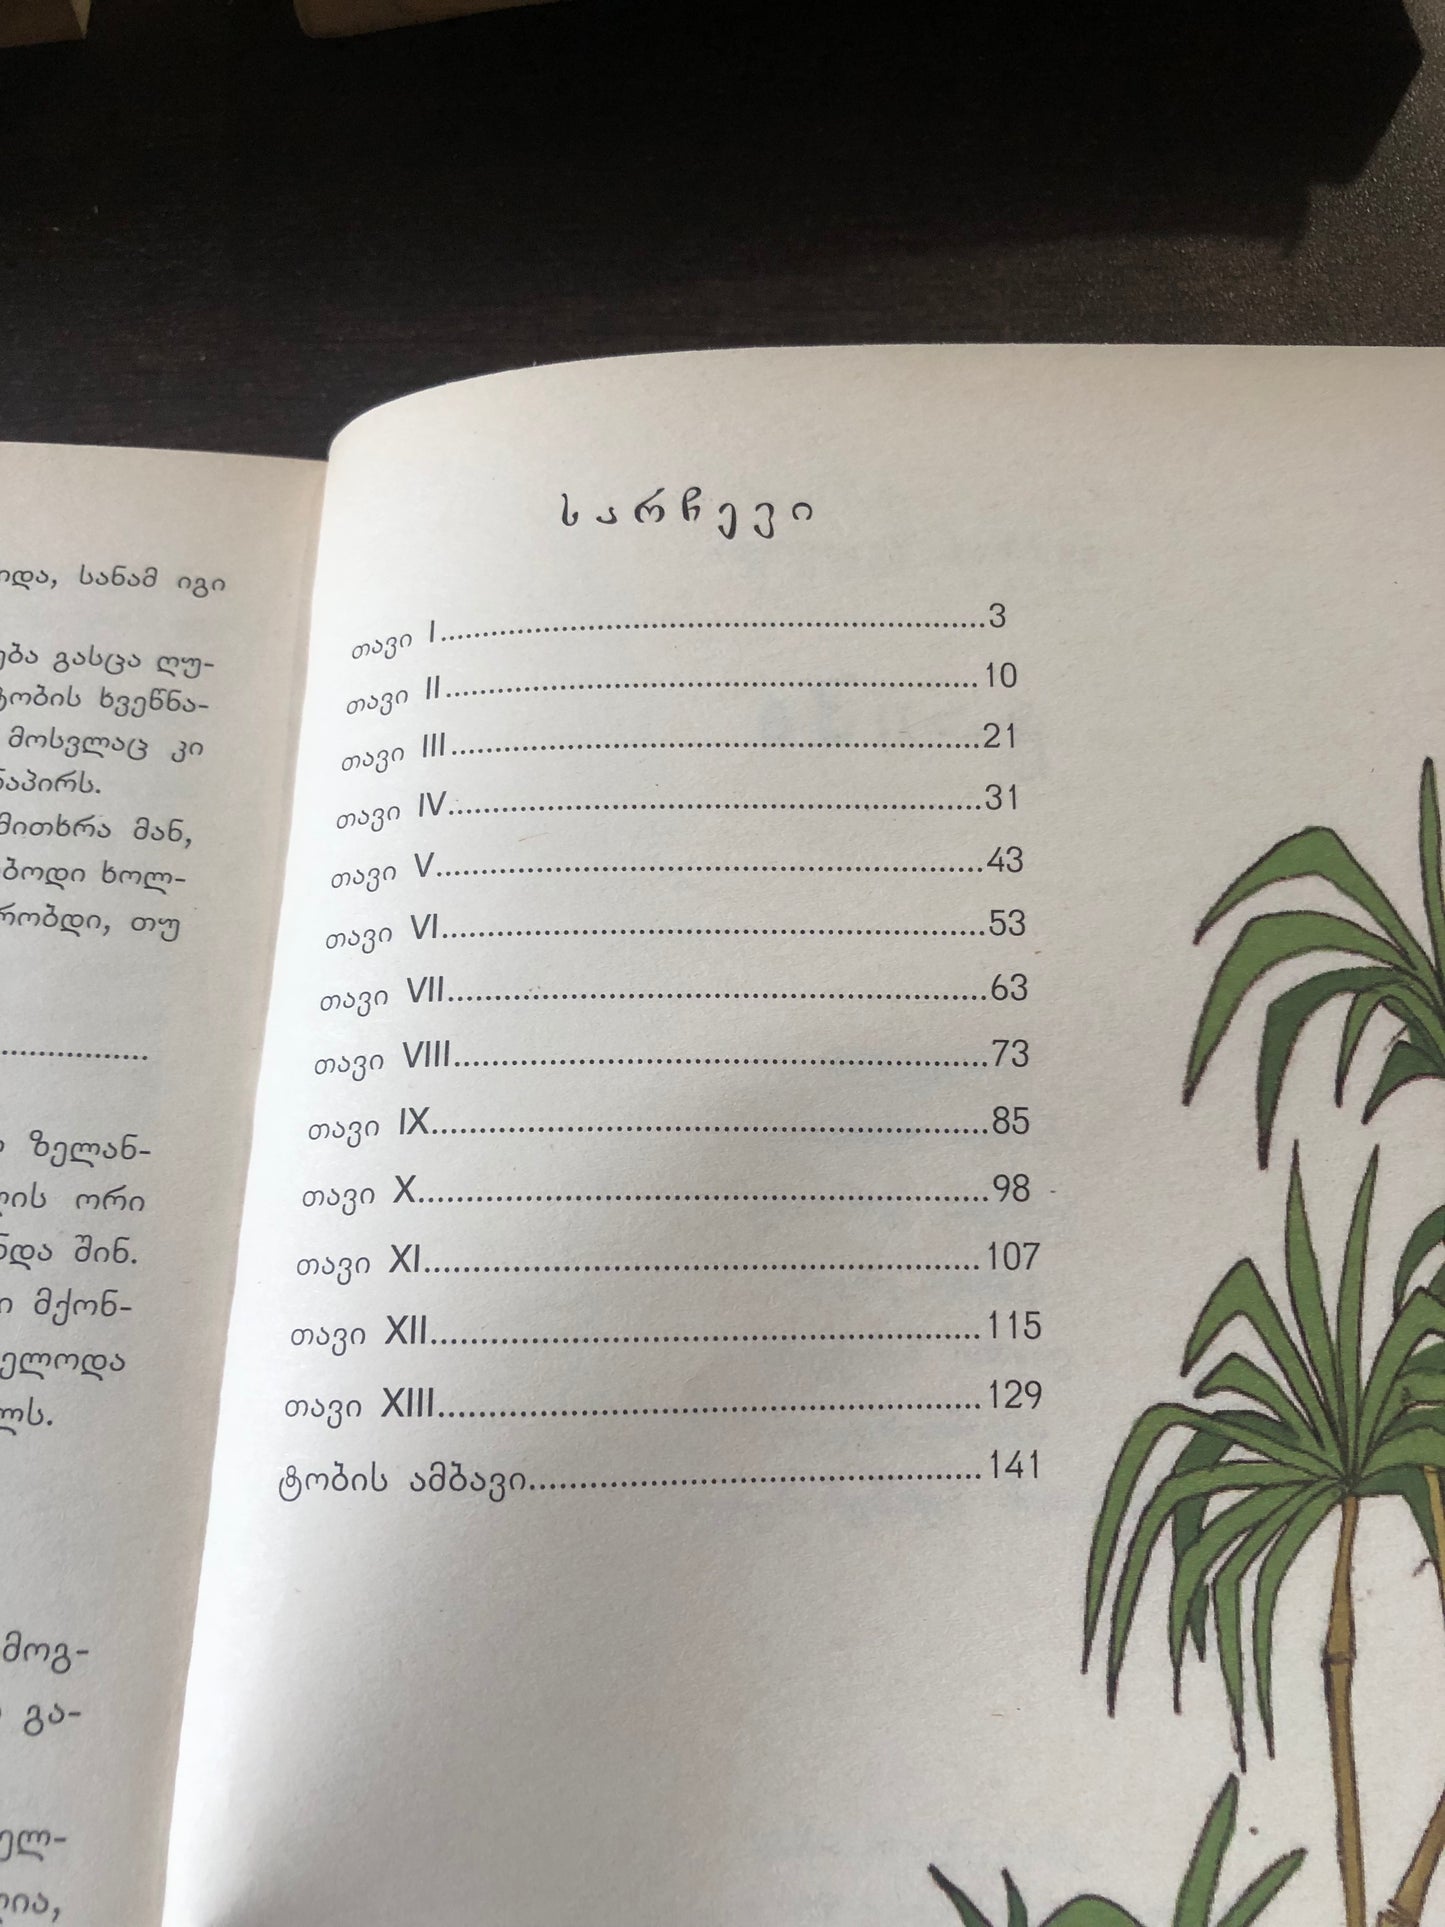 სანამ იგი
გასცა ღუ-
ხვეწნა-
მოსვლაც კი
მან,
ხოლ-
თუ
ზელან-
ორი
შინ.
მქონ-
მოგ-
გა-
სარჩევი
თავი I...3
თავი II...10
თავი III...21
თავი IV...31
თავი V...43
თავი VI...53
თავი VII...63
თავი VIII...73
თავი IX...85
თავი X...98
თავი XI...107
თავი XII...115
თავი XIII...129
ტობის ამბავი...141